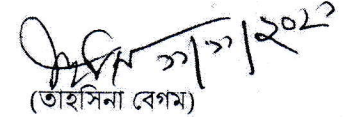 ১১/১১/২০২১
(তাহসিনা বেগম)